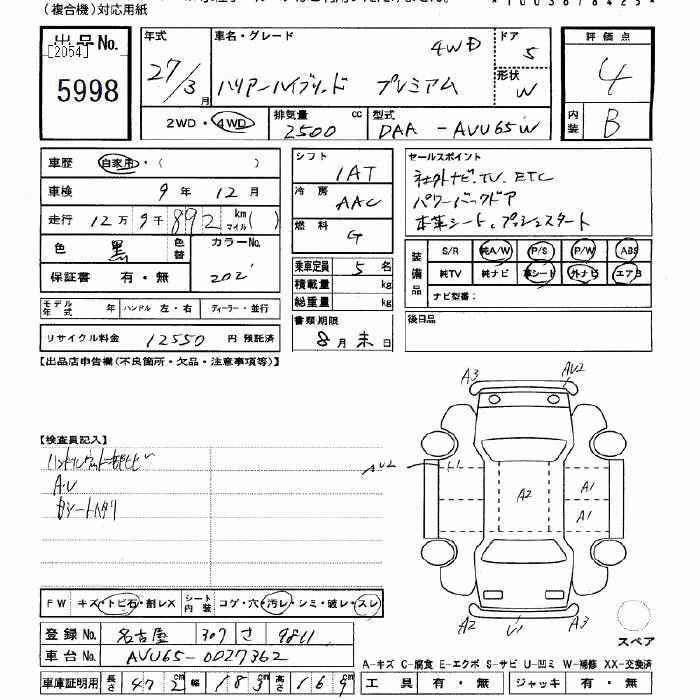 (複合機)対応用紙
出品No.
[2054]
5998
年式
27/3月
車名・グレード
4WD
ハリアーハイブリッド プレミアム
ドア
5
形状
W
評価点
4
内装
B
2WD・4WD
排気量 cc
2500
型式
DAA-AVU65W
車歴 自家用・( )
車検 9年12月
走行 12万9千892 km マイル( )
色 黒 色替 カラーNo. 202
保証書 有・無
モデル年式 ハンドル 左・右 ディーラー・並行
リサイクル料金 12550 円 預託済
シフト
IAT
冷房
AAC
燃料
G
乗車定員 5名
積載量 kg
総重量 kg
書類期限
8月末日
セールスポイント
社外ナビ.TV. ETC
パワーバックドア
本革シート、プッシュスタート
装備品
S/R 純A/W P/S P/W ABS
純TV 純ナビ 革シート 外ナビ エアB
ナビ型番:
後日品
【出品店申告欄(不良箇所・欠品・注意事項等)】
【検査員記入】
A・U
A3 AU2
AU2
A2
A1
A1
A2 U1 A3
スペア
FW キズ・トビ石・割レX シート内装 コゲ・穴・汚レ・シミ・破レ・スレ
登録No. 名古屋 307 さ 9811
車台No. AVU65-0027362
車庫証明用 長さ 472cm 幅 183cm 高さ 169cm
A-キズ C-腐食 E-エクボ S-サビ U-凹ミ W-補修 XX-交換済
工具 有・無 ジャッキ 有・無